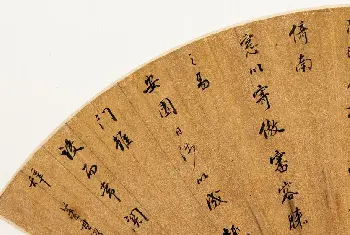 倚南
窓以寄傲審容膝
之易
安園日涉以成趣
门雖
設而常関